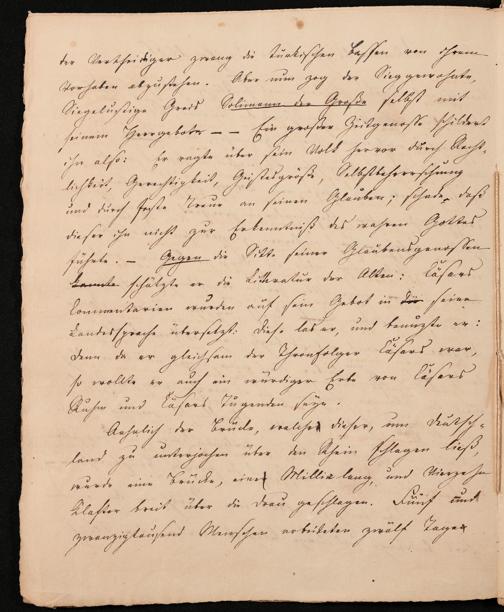 der Vertheidiger zwang die türkischen Bassen von ihrem
Vorhaben abzustehen. Aber nun zog der Sieggewohnte,
Siegelustige Greis Solimann der Große selbst mit
seinem Heergebote — — Ein großer Zeitgenoss schildert
ihn also: Er ragte über sein Volk hervor durch Recht-
lichkeit, Gerechtigkeit, Geistesgröße, Selbstbeherrschung
und durch feste Treue an seinen Glauben; schade, daß
dieser ihn nicht zur Erkenntniß des wahren Gottes
führte. — Gegen die Sitte seiner Glaubensgenossen
konnte schätzte er die Litteratur der Alten: Cäsars
Commentarien wurden auf sein Gebot in die seine
Landessprache übersetzt: diese las er, und benutzte er:
denn da er gleichsam der Thronfolger Cäsars war,
so wollte er auch ein würdiger Erbe von Cäsars
Ruhm und Cäsars Tugenden seyn.
Aehnlich der Brücke, welche dieser, um Deutsch-
land zu unterjochen über den Rhein schlagen ließ,
wurde eine Brücke, eine Millie lang, und Vierzehn
Klafter breit über die Drau geschlagen. Fünf und
zwanzigtausend Menschen arbeiteten zwölf Tage